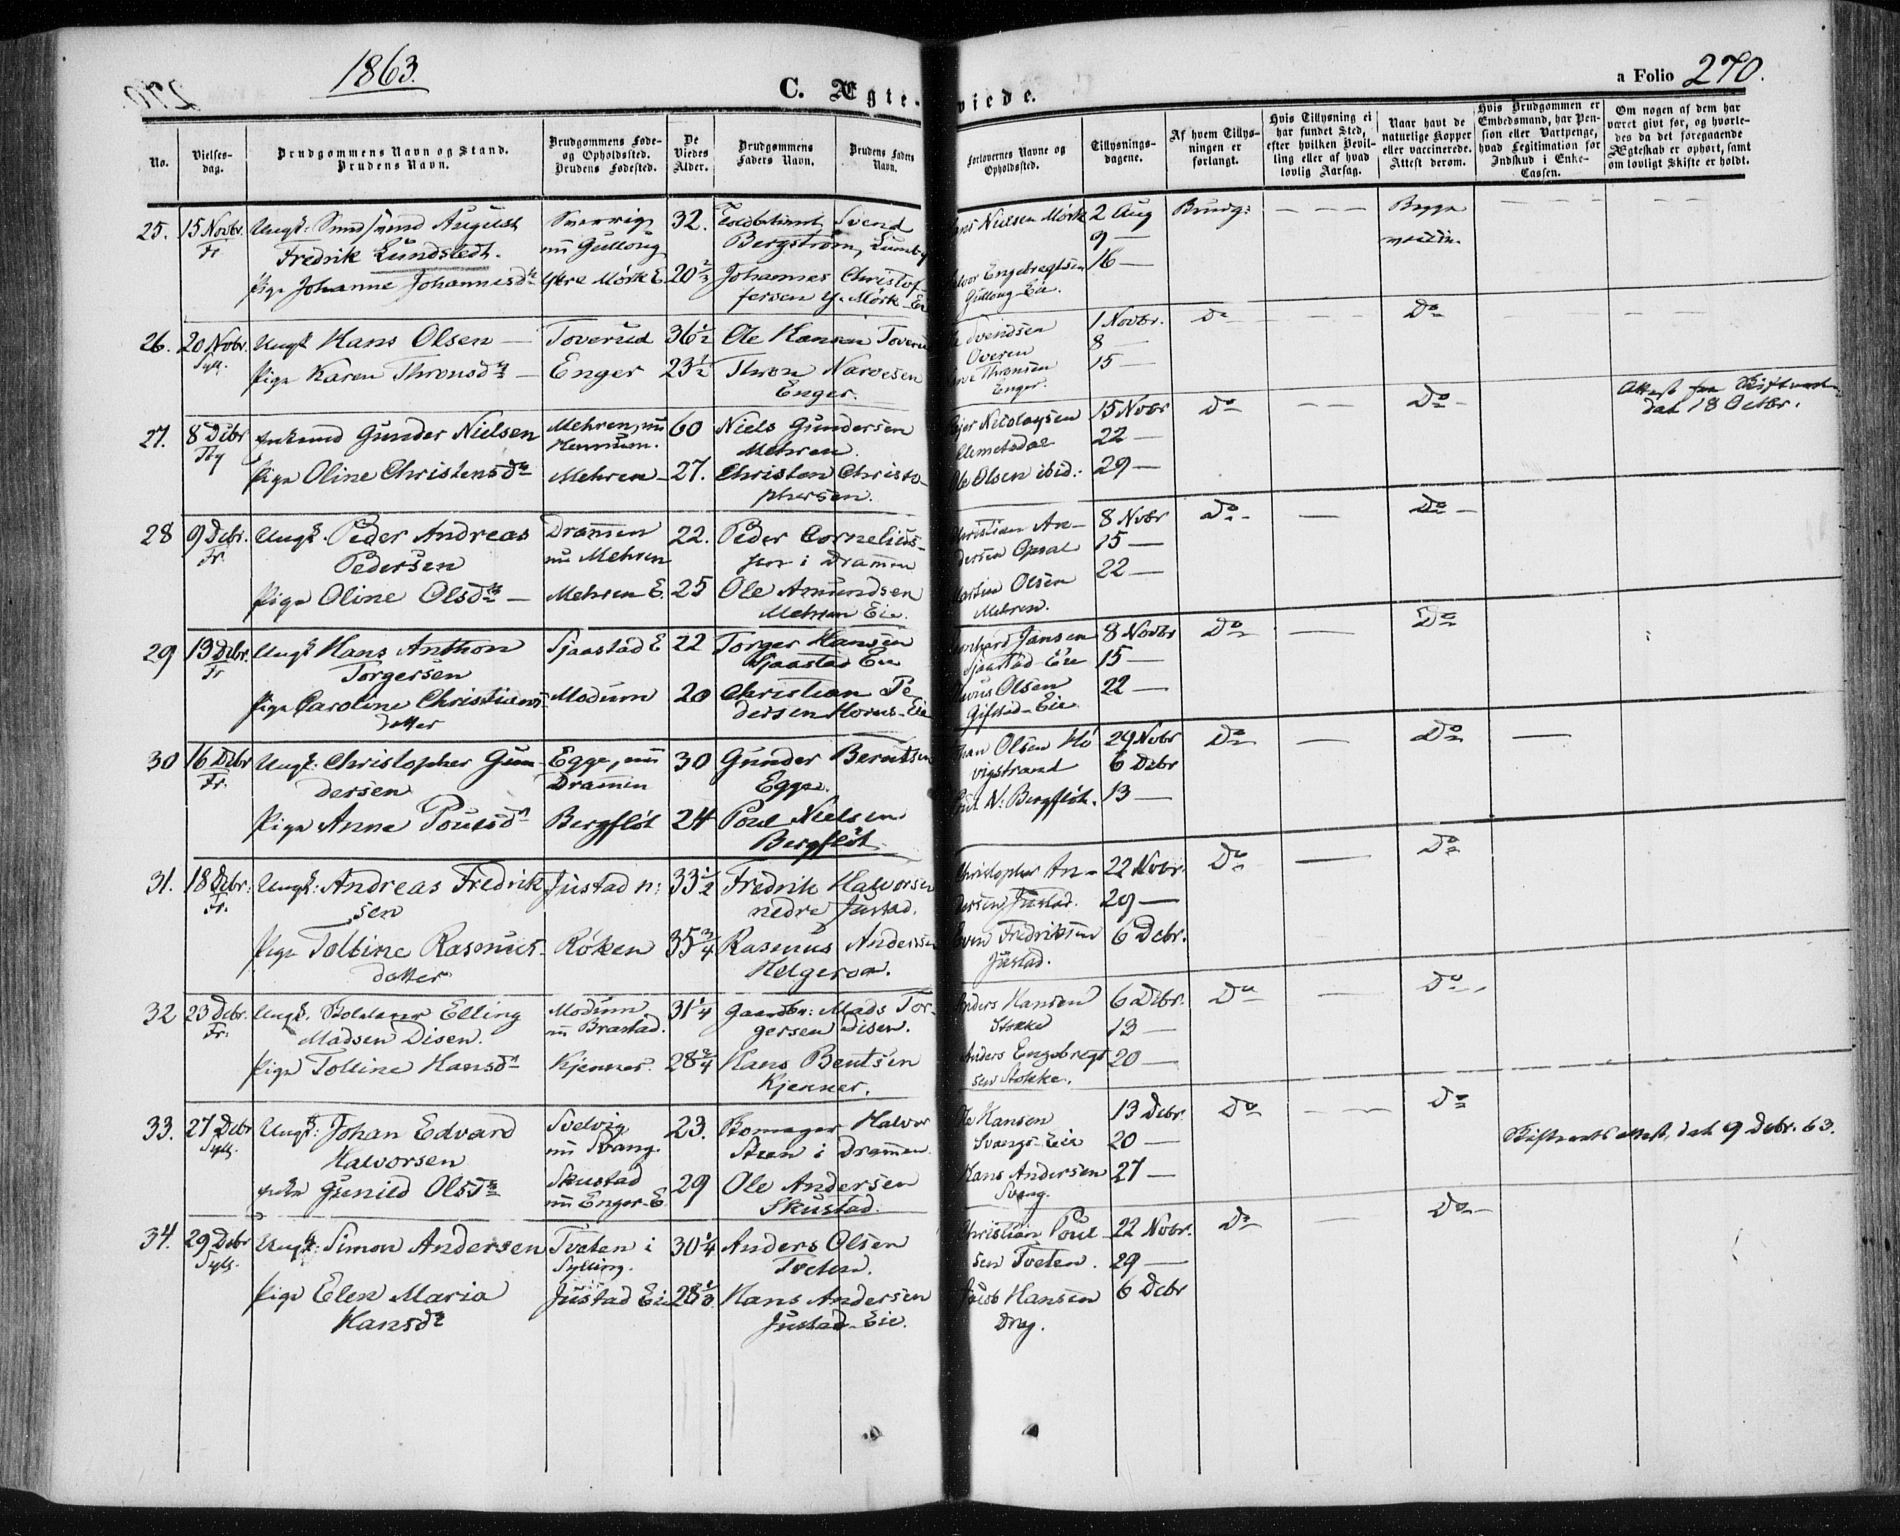 1863.
C. Ægte-viede.
a Folio 270.
No.
Vielses-dag.
Brudgommens Navn og Stand. Brudens Navn.
Brudgommens Føde- og Opholdssted. Brudens Fødested.
De Viedes Alder.
Brudgommens Faders Navn.
Brudens Faders Navn.
Forlovernes Navne og Opholdssted.
Tillysnings-dagene.
Af hvem Tillysningen er forlangt.
Hvis Tillysning ei har fundet Sted, efter hvilken Bevilling eller af hvad lovlig Aarsag.
Naar havt de naturlige Kopper eller vaccinerede. Attest derom.
Hvis Brudgommen er Embedsmand, har Pension eller Vartpenge, hvad Legitimation for Indskud i Enke-Cassen.
Om nogen af dem har været givt før, og hvorledes da det foregaaende Ægteskab er ophørt, samt om lovligt Skifte er holdt.
25. 15 Novbr. Ungk: August 32. Svend 2 Aug Brudg: Begge
Fr Fredrik Lundstedt. nu Gullaug Bergstrøm, 9 —
Pige Johanne Johannesd. Ytre Mørk E. 20 2/3 Johannes Christof- Engebregtsen 16 —
fersen y. Mørk-Eie Gullaug-Eie.
26. 20 Novbr. Ungk Hans Olsen — Toverud 36 1/2 Ole Hansen Toverud Svendsen 1 Novbr. Do Do
Syll. Overen 8 —
Pige Karen Thronsdr — Enger 23 1/2 Thron Narvesen Thronsen 15 —
Enger. Enger.
27. 8 Debr Enkemd Gunder Nielsen Mehren, nu 60 Niels Gundersen Nicolaysen 15 Novbr Do Do Attest fra Skifteretten
Mehren. 22 — dat 18 Octbr.
Pige Oline Christensdr Mehren 27. Christen Christo- Ole Olsen ibid: 29 —
phersen.
28 9 Debr. Ungk. Peder Andreas Dramen 22. Peder Cornelius- Christian An- 8 Novbr Do Do
Fr. Pedersen nu Mehren sen i Dramen dersen Opsal 15 —
Pige Oline Olsdr — Mehren E. 25 Ole Amundsen Martin Olsen 22 —
Mehren Eie. Mehren.
29 13 Debr. Ungk Hans Anthon Sjaastad E 22 Torger Hansen Jansen 8 Novbr Do Do
Fr Torgersen Sjaastad Eie Sjaastad-Eie 15 —
Pige Caroline Christians- Modum 20 Christian Pe- Olsen 22 —
datter dersen Horns-Eie Gifstad-Eie
30 16 Debr Ungk: Christopher Gun- Egge, nu 30 Gunder Berntsen Johan Olsen Hø 29 Novbr Do Do
Fr. dersen Dramen Egge. vigstrand 6 Debr
Pige Anne Poulsdr Bergfløt 24 Poul Nielsen N: Bergfløt. 13 —
Bergfløt.
31. 18 Debr: Ungk: Andreas Fredrik- Justad n: 33 1/2 Fredrik Halvorsen Christopher An- 22 Novbr. Do Do
Fr. sen nedre Justad. dersen Justad. 29 —
Pige Tolline Rasmus- Røken 35 3/4 Rasmus Andersen Even Fredriksen 6 Debr.
datter Helgeroa. Justad.
32 23 Debr. Ungk. Soldater Elling Modum 31 1/4 Gaardbr: Mads Tor- Anders Hansen 6 Debr. Do Do
Fr: Madsen Disen. nu Brastad. gersen Disen. Stokke 13 —
Pige Tolline Hansdr Kjenner. 28 2/4 Hans Bentsen Anders Engebregt 20 —
Kjenner. sen Stokke.
33. 27 Debr Ungk: Johan Edvard Svelvig 23. Halvor Ole Hansen 13 Debr. Do Do
Syll. Halvorsen nu Svang. i Dramen Svangs-Eie 20 — Skifteretsattest, dat 9 Debr. 63.
Gunild Olsdr Skustad 29 Ole Andersen Hans Andersen 27 —
nu Enger-E. Skustad. Svang.
34. 29 Debr Ungk: Simon Andersen Tveten i 30 1/4 Anders Olsen Christian Poul- 22 Novbr. Do Do
Syll. Sylling. Tveten. sen Tveten. 29 —
Pige Elen Maria Justad Eie 28 1/3 Hans Andersen Jacob Hansen 6 Debr
Hansdr Justad-Eie. Drag.